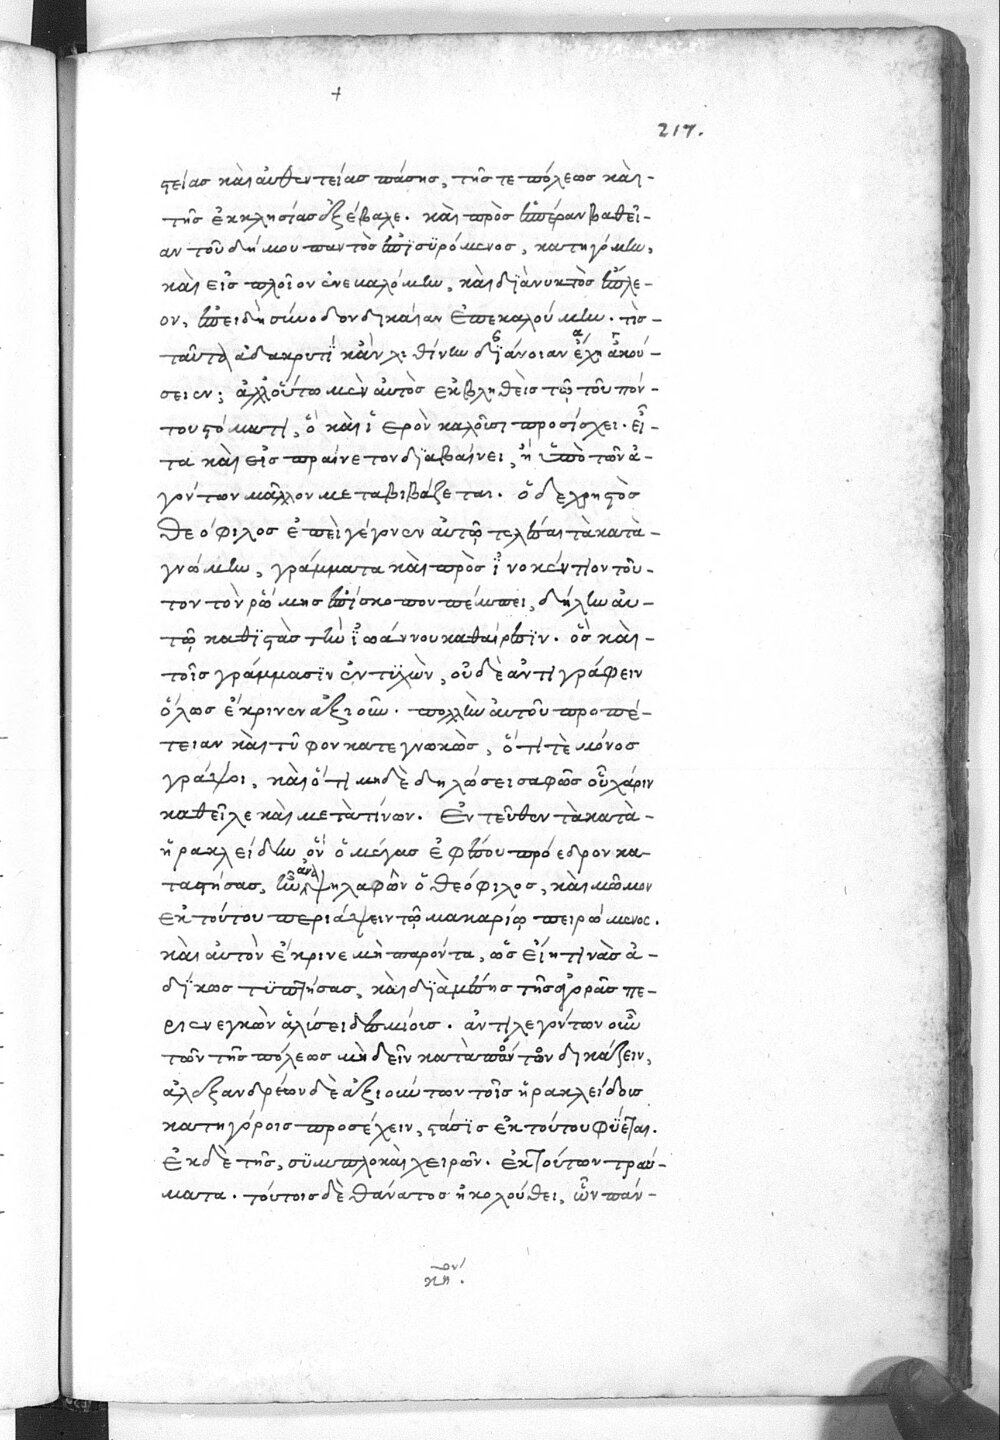 +
217.
στείας καὶ αὐθεντείας πάσης, τῆς τε πόλεως καὶ -
τῆς ἐκκλησίας ἐξέβαλε. καὶ πρὸς ἑσπέραν βαθεῖ -
αν τοῦ δήμου παντὸς ἐπισυρόμενος, κατηγόμην,
καὶ εἰς πλοῖον ἐνεβαλόμην, καὶ διὰ νυκτὸς ἔπλε -
ον, ἐπειδὴ σύνοδον δικαίαν ἐπεκαλούμην. τίς -
ταῦτα ἀδακρυτὶ κἂν λιθίνην διάνοιαν ἔχῃ ἀκού -
σειεν; ἀλλ' οὕτω μὲν αὐτὸς ἐκβληθεὶς τῷ τοῦ πόν -
του στόματι, ὃ καὶ ἱερὸν καλοῦσι προσίσχει. εἶ -
τα καὶ εἰς πραίνετον διαβαίνει, ἢ ὑπὸ τῶν ἀ -
γόντων μᾶλλον μεταβιβάζεται. ὁ δὲ χρηστὸς
Θεόφιλος ἐπεὶ γέγονεν αὐτῷ τελέσαι τὰ κατὰ -
γνώμην, γράμματα καὶ πρὸς ἰνοκέντιον τοῦ -
τον τὸν ῥώμης ἐπίσκοπον πέμπει, δήλην αὐ -
τῷ καθιστὰς τὴν ἰωάννου καθαίρεσιν. ὃς καὶ -
τοῖς γράμμασιν ἐντυχὼν, οὐδὲ ἀντιγράφειν
ὅλως ἔκρινεν ἄξιον. πολλὴν αὐτοῦ προπέ -
τειαν καὶ τῦφον κατεγνωκὼς, ὅτι τε μόνος
γράψοι, καὶ ὅτι μηδὲ δηλώσει σαφῶς οὗ χάριν
καθεῖλε καὶ μετὰ τίνων. Ἐντεῦθεν τὰ κατὰ -
ἡρακλείδην ὃν ὁ μέγας ἐφέσου πρόεδρον κα -
ταστήσας, ἦν ἀναψηλαφῶν ὁ θεόφιλος, καὶ μῶμον
ἐκ τούτου περιάψειν τῷ μακαρίῳ πειρώμενος.
καὶ αὐτὸν ἔκρινε μὴ παρόντα, ὡς εἴη τινὰς ἀ -
δίκως τυπτήσας, καὶ διὰ μέσης τῆς ἀγορᾶς πε -
ριενεγκὼν ἁλύσει δεσμίοις. ἀντιλεγόντων οὖν
τῶν τῆς πόλεως μὴ δεῖν κατὰ ἀπόντων δικάζειν,
ἀλεξανδρέων δὲ ἀξιούντων τοῖς ἡρακλείδους
κατηγόροις προσέχειν, στάσις ἐκ τούτου φύεται.
Ἐκ δὲ τῆς, συμπλοκαὶ χειρῶν. ἐκ τούτων τραύ -
ματα. τούτοις δὲ θάνατος ἠκολούθει, ὧν πάν -